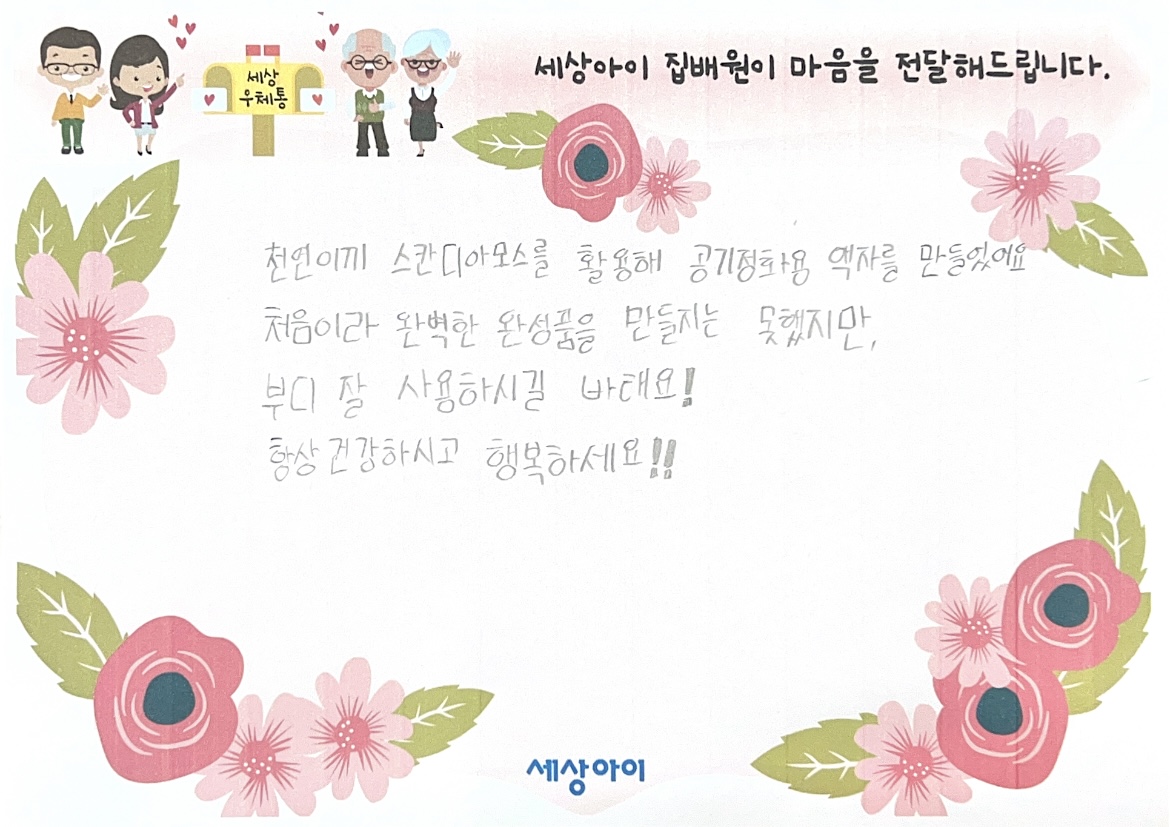 세상아이 집배원이 마음을 전달해드립니다.
세상
우체통
천연이끼 스칸디아모스를 활용해 공기정화용 액자를 만들었어요
처음이라 완벽한 완성품을 만들지는 못했지만,
부디 잘 사용하시길 바래요!
항상 건강하시고 행복하세요!!
세상아이